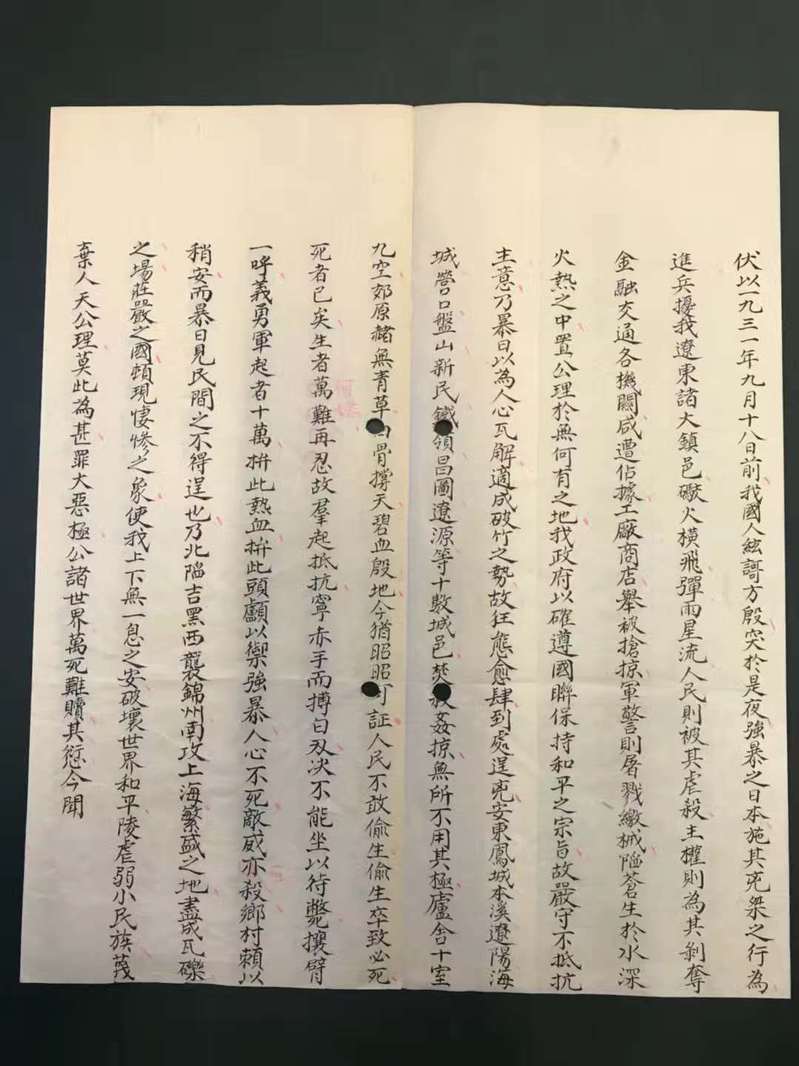 伏以一九三一年九月十八日前我國人絃謌方殷突於是夜強暴之日本施其兇桀之行為
進兵擾我遼東諸大鎮邑礮火橫飛彈雨星流人民則被其虐殺主權則為其剝奪
金融交通各機關咸遭佔據工廠商店舉被搶掠軍警則屠戮繳械陷蒼生於水深
火熱之中置公理於無何有之地我政府以確遵國聯保持和平之宗旨故嚴守不抵抗
主意乃暴日以為人心瓦解適成破竹之勢故狂態愈肆到處逞兇安東鳳城本溪遼陽海
城營口盤山新民鐵領昌圖遼源等十數城邑焚殺姦掠無所不用其極廬舍十室
九空郊原赭無青草白骨撐天碧血殷地今猶昭昭可証人民不敢偷生偷生卒致必死
死者已矣生者萬難再忍故羣起抵抗寧赤手而搏白刃決不能坐以待斃攘臂
一呼義勇軍起者十萬拚此熱血拚此頭顱以禦強暴人心不死敵威亦殺鄉村賴以
稍安而暴日見民間之不得逞也乃北陷吉黑西襲錦州南攻上海繁盛之地盡成瓦礫
之場莊嚴之國頓現悽慘之象使我上下無一息之安破壞世界和平陵虐弱小民族蔑
棄人天公理莫此為甚罪大惡極公諸世界萬死難贖其愆今聞